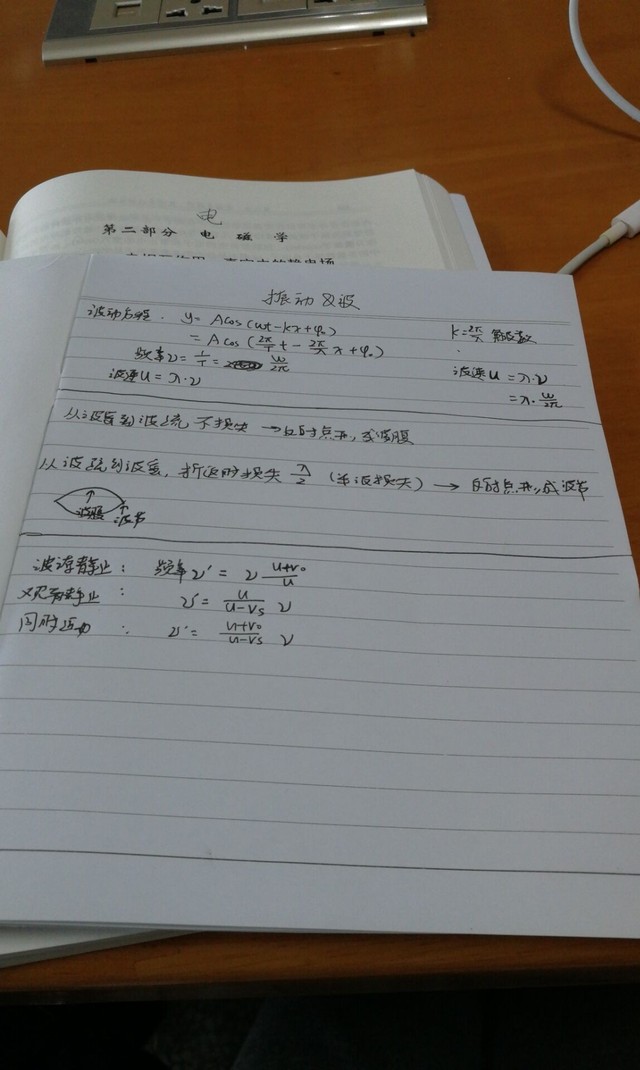 电
第二部分 电磁学
振动&波
波动方程. y= Acos(ωt-kx+φ₀)
k=2π/λ 角波数
= Acos(2π/T t - 2π/λ x + φ₀)
频率ν= 1/T = ω/2π
波速u = λ·ν
波速u = λ·ν
= λ· ω/2π
从波密到波疏 不损失 → 反射点形成波腹
从波疏到波密, 折返时损失 λ/2 (半波损失) → 反射点形成波节
波腹 波节
波源静止: 频率ν' = ν (u+v₀)/u
观察静止: ν' = u/(u-vs) ν
同时运动: ν' = (u+v₀)/(u-vs) ν